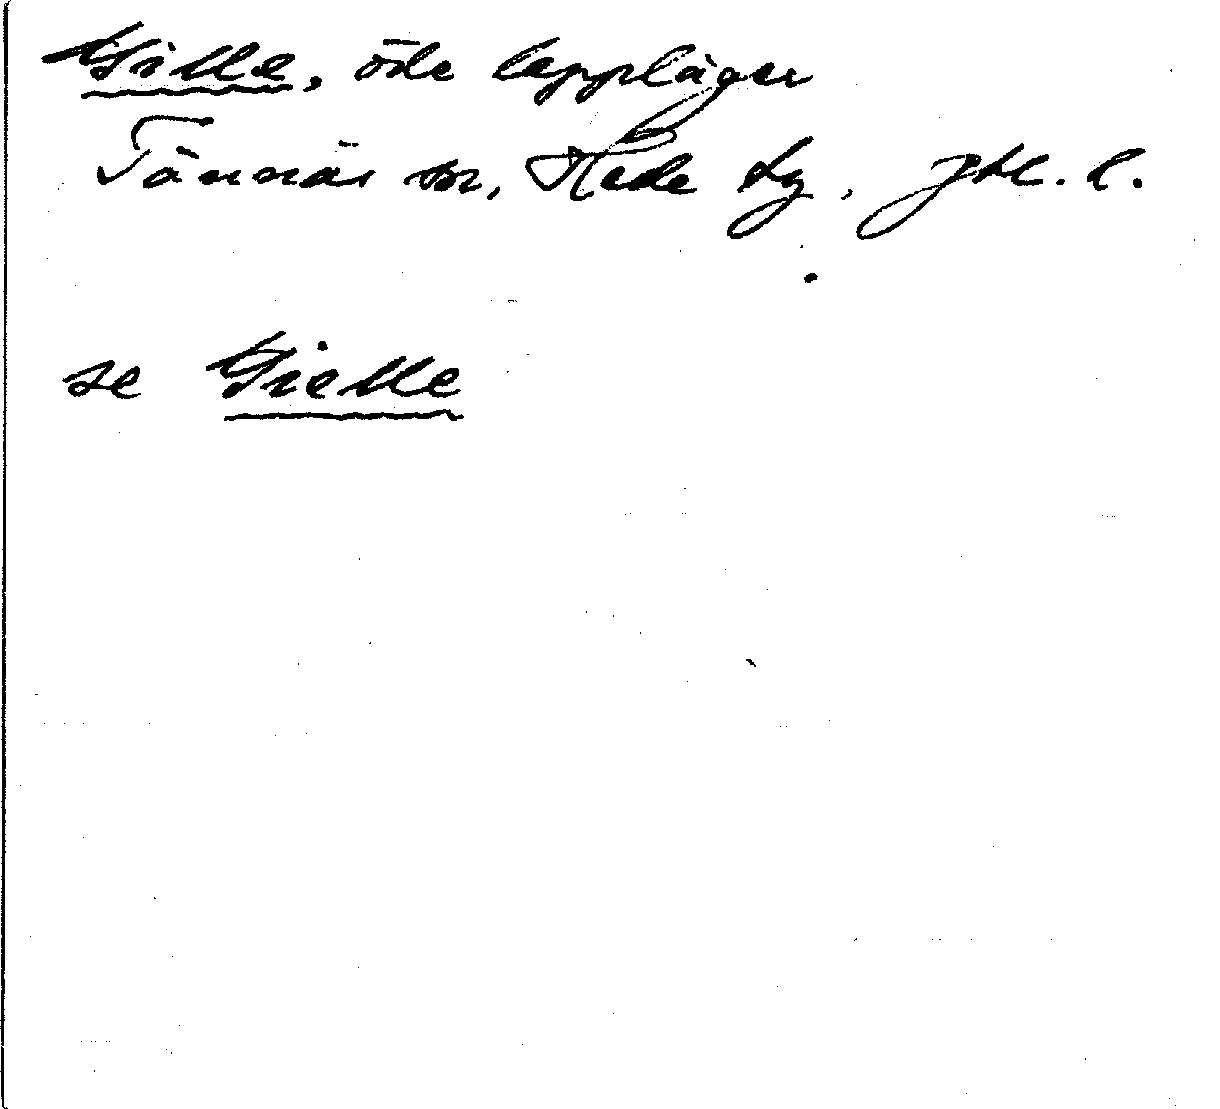 Gille, öde lappläger
Tännäs sn, Hede tg, Jtl. l.
se Gielle